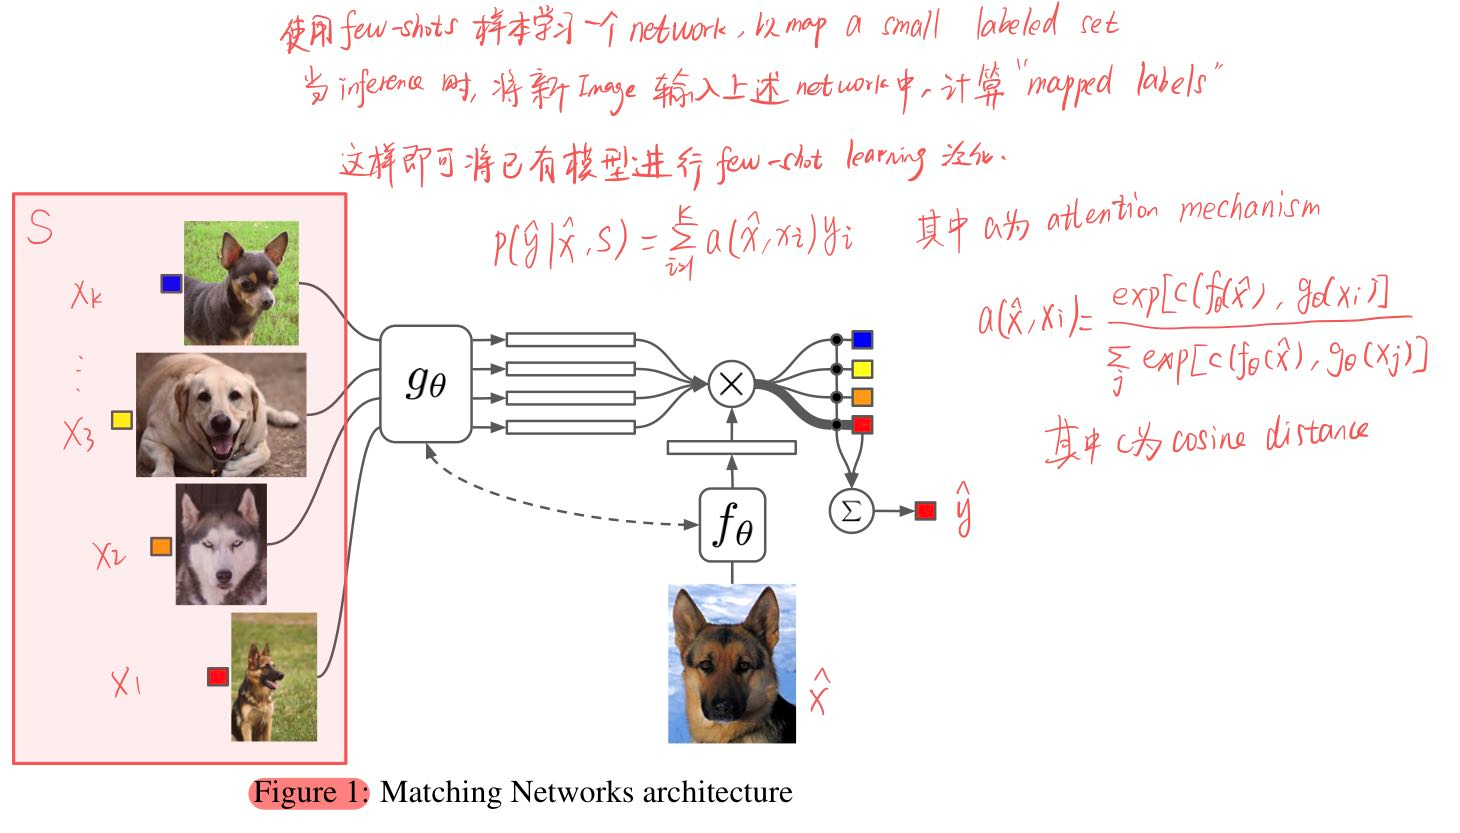 使用few-shots 样本学习一个network，以map a small labeled set
当inference 时，将新Image 输入上述network中，计算"mapped labels"
这样即可将已有模型进行few-shot learning 泛化.
p(ŷ|x̂,S) = Σ_{i=1}^{k} a(x̂,xi)yi 其中a为 attention mechanism
a(x̂,xi)= exp[c(fθ(x̂), gθ(xi)] / Σ_j exp[c(fθ(x̂), gθ(xj)]
其中c为cosine distance
S
xk
⋮
x3
x2
x1
gθ
×
fθ
Σ
ŷ
x̂
Figure 1: Matching Networks architecture